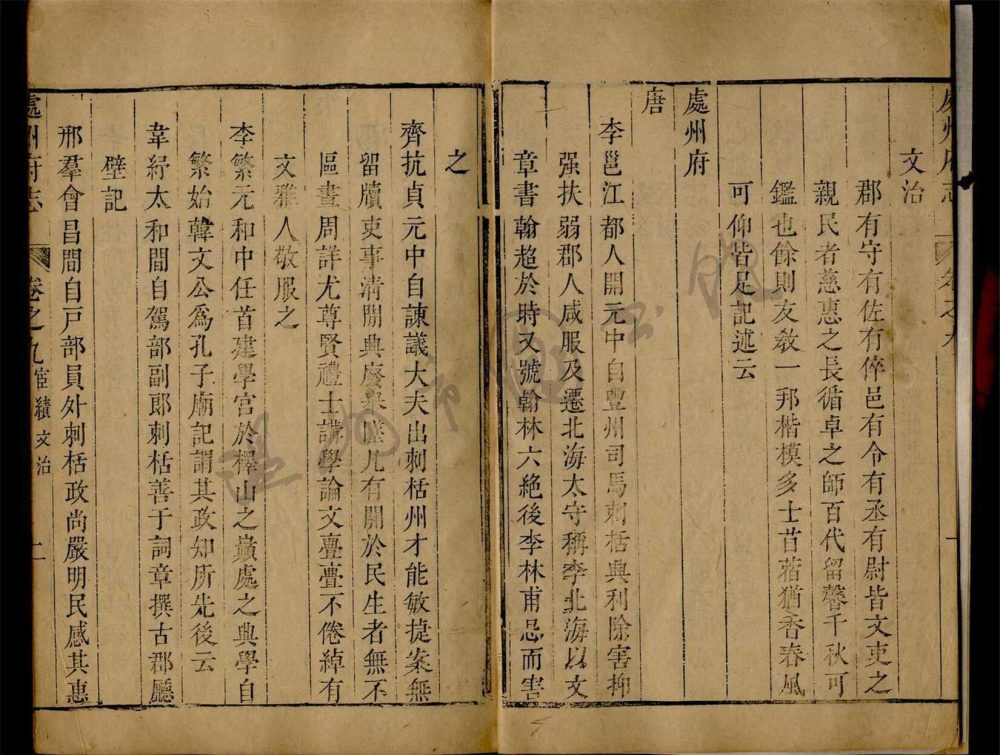 處州府志
卷之九
一
文治
郡有守有佐有倅邑有令有丞有尉皆文吏之
親民者慈惠之長循卓之師百代留馨千秋可
鑑也餘則友教一邦楷模多士苜蓿猶香春風
可仰皆足記述云
處州府
唐
李邕江都人開元中自豊州司馬刺栝興利除害抑
强扶弱郡人咸服及遷北海太守稱李北海以文
章書翰超於時又號翰林六絶後李林甫忌而害
之
齊抗貞元中自諫議大夫出刺栝州才能敏捷案無
留牘吏事清閒典廢舉墜凡有關於民生者無不
區畫周詳尤尊賢禮士講學論文亹亹不倦綽有
文雅人敬服之
李繁元和中任首建學宮於樿山之巔處之興學自
繁始韓文公爲孔子廟記謂其政知所先後云
韋紓太和間自駕部副郎刺栝善于詞章撰古郡廳
壁記
邢羣會昌間自戸部員外刺栝政尚嚴明民感其惠
處州府志
卷之九宦績文治
二